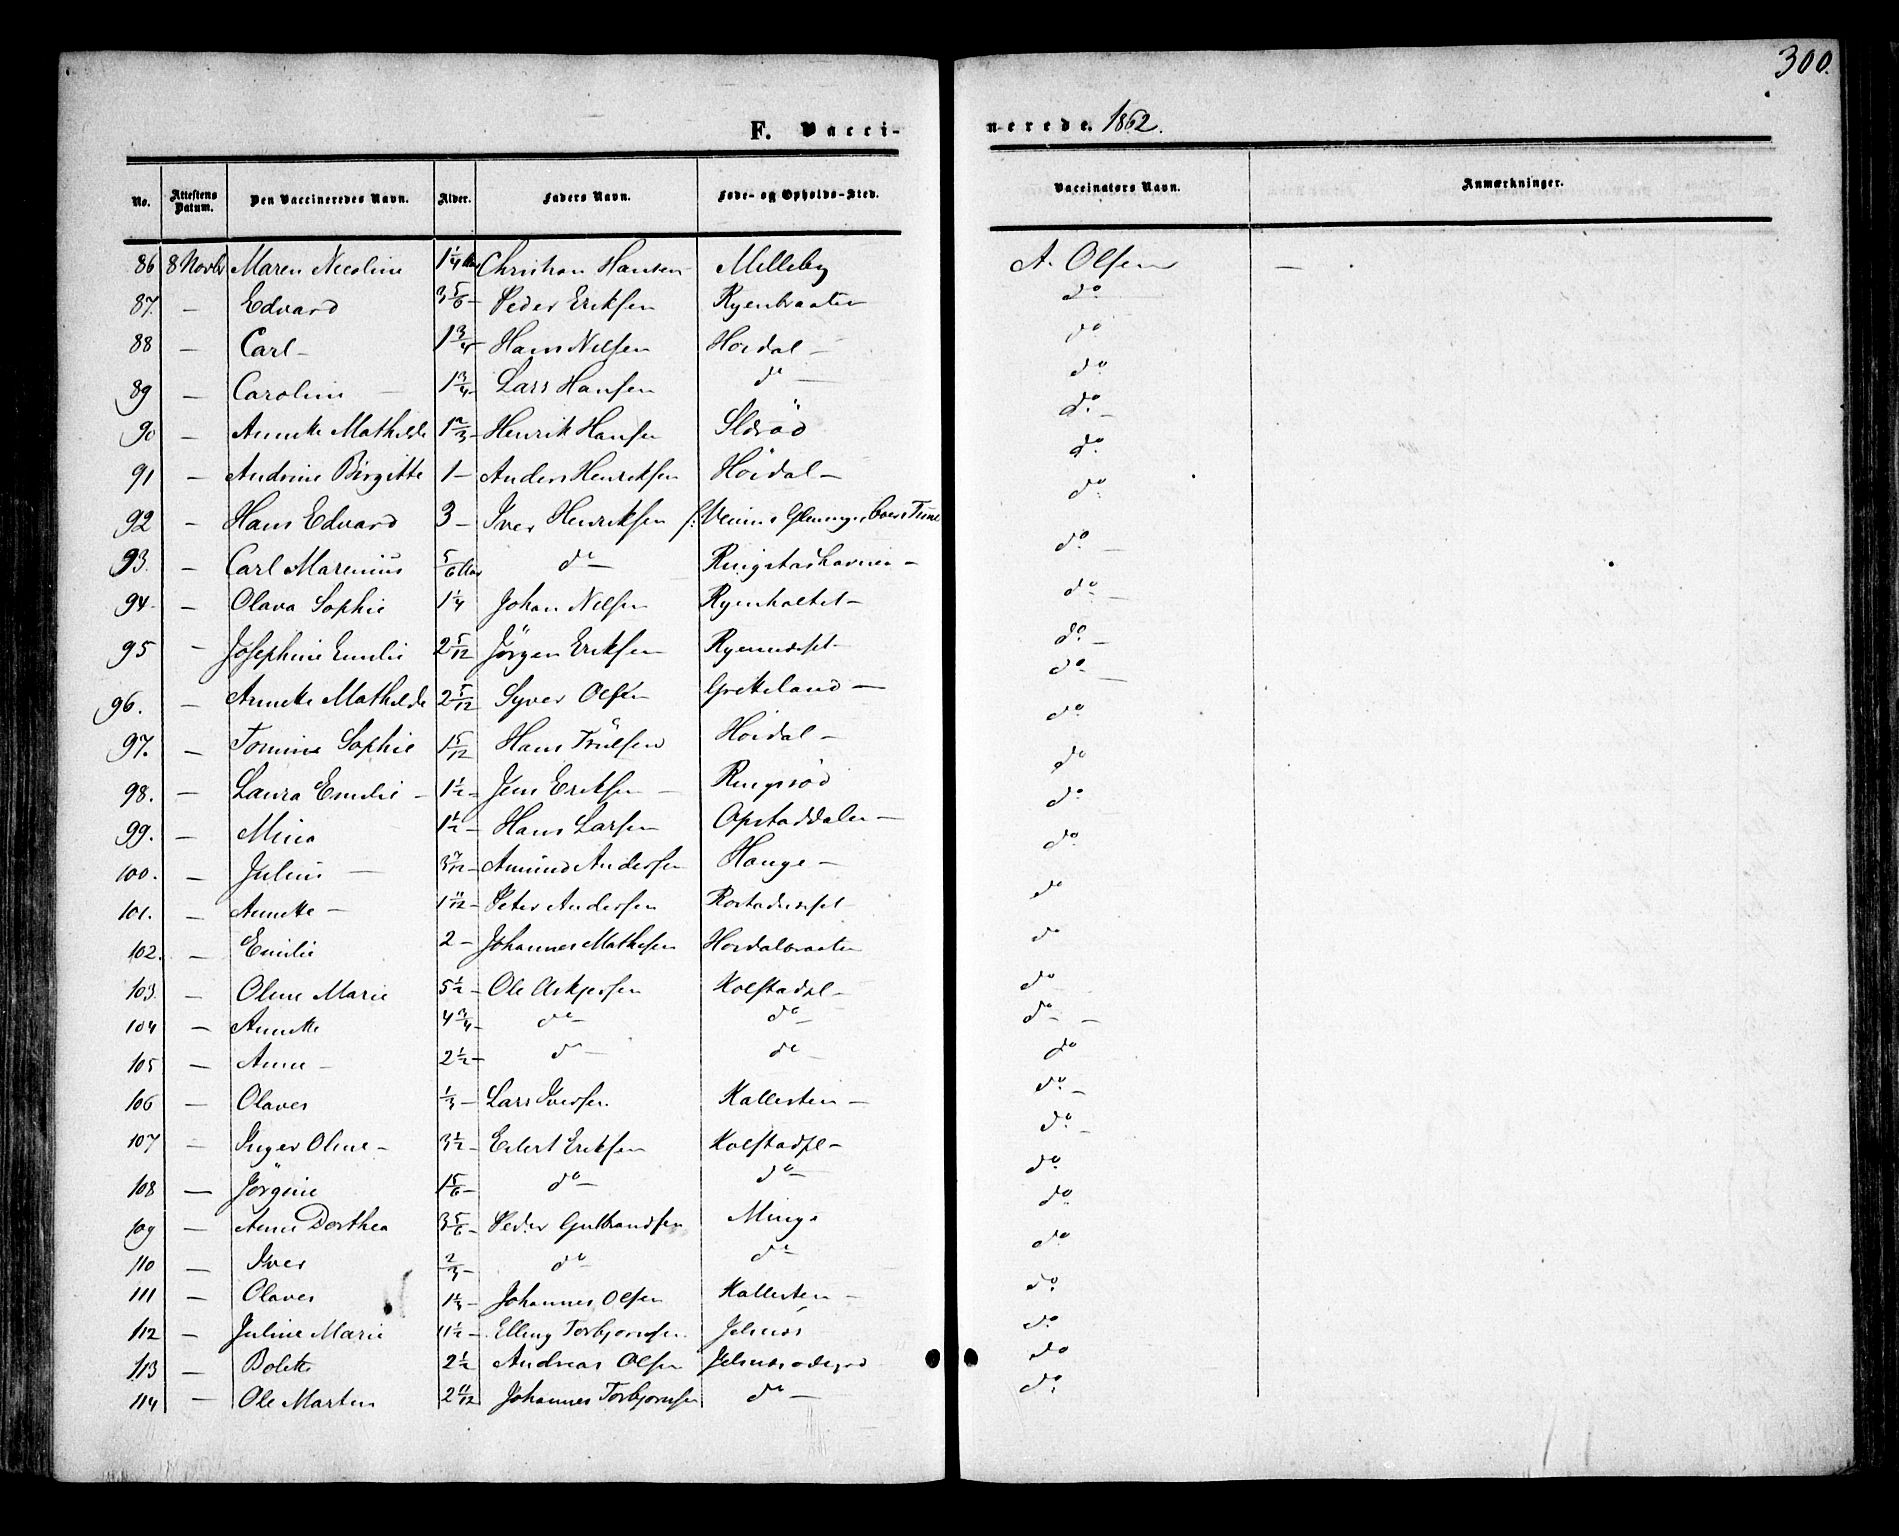 300.
F. Vacci-
nerede. 1862.
No. Attestens Datum. Den Vaccineredes Navn. Alder. Faders Navn. Føde- og Opholds-Sted. Vaccinators Navn. Anmærkninger.
86 8 Novbr Maren Nicoline 1 1/4 Aar Christian Hansen Milleby A. Olsen —
87. — Edvard 3 5/6 — Peder Eriksen Ryenbraaten do
88 — Carl — 1 3/4 — Hans Nilsen Hoidal — do
89 — Caroline — 1 3/4 — Lars Hansen do — do
90 — Annette Mathilde 1 2/3 — Henrik Hansen do —
91 — Andrine Birgitte 1 — Anders Henriksen Höidal — do
92 — Hans Edvard 3 — Iver Henriksen do
93. — Carl Marenius 5/6 Aar do — do —
94. — Olava Sophie 1 1/4 Johan Nilsen Ryenholtet — do —
95 — Josephine Emilie 2 5/12 Jörgen Eriksen do —
96. — Annette Mathilde 2 5/12 Syver Olsen Grekeland — do —
97. — Tomine Sophie 1 5/12 Hans Trulsen Hoidal — do
98. — Laura Emilie — 1 1/2 — Jens Eriksen — Ringsröd do
99. — Mina 1 1/2 — Hans Larsen Opstaddalen — do
100. — Julius — 3 7/12 — Amund Andersen Hauge — do
101. — Annette — 1 11/12 — Peter Andersen do
102. — Emilie 2 — Johannes Mathisen Hoidalbraaten do
103. — Oline Marie 5 1/2 — Ole Askjersen Kolstadpl — do
104 — Annette 4 3/4 — do — do — do — —
105 — Anne — 2 1/2 — do — do — do
106 — Olaves 1/3 — Lars Iversen Kallesten — do —
107 — Inger Oline — 3 1/2 — Eilert Eriksen Kolstadpl — do —
108 — Jörgine 1 5/6 — do — do — do
109 — Anne Dorthea 3 5/6 — Peder Gulbrandsen Minge do
110 — Iver 2/3 — do — do — do
111 — Olaves 1 1/3 — Johannes Olsen Kallesten — do
112 — Juline Marie 11 1/2 — Elling Torbjornsen Jelsnes do
113 — Bolette 2 1/2 Andreas Olsen do
114 — Ole Martin 2 11/12 Johannes Torbjornsen do — do